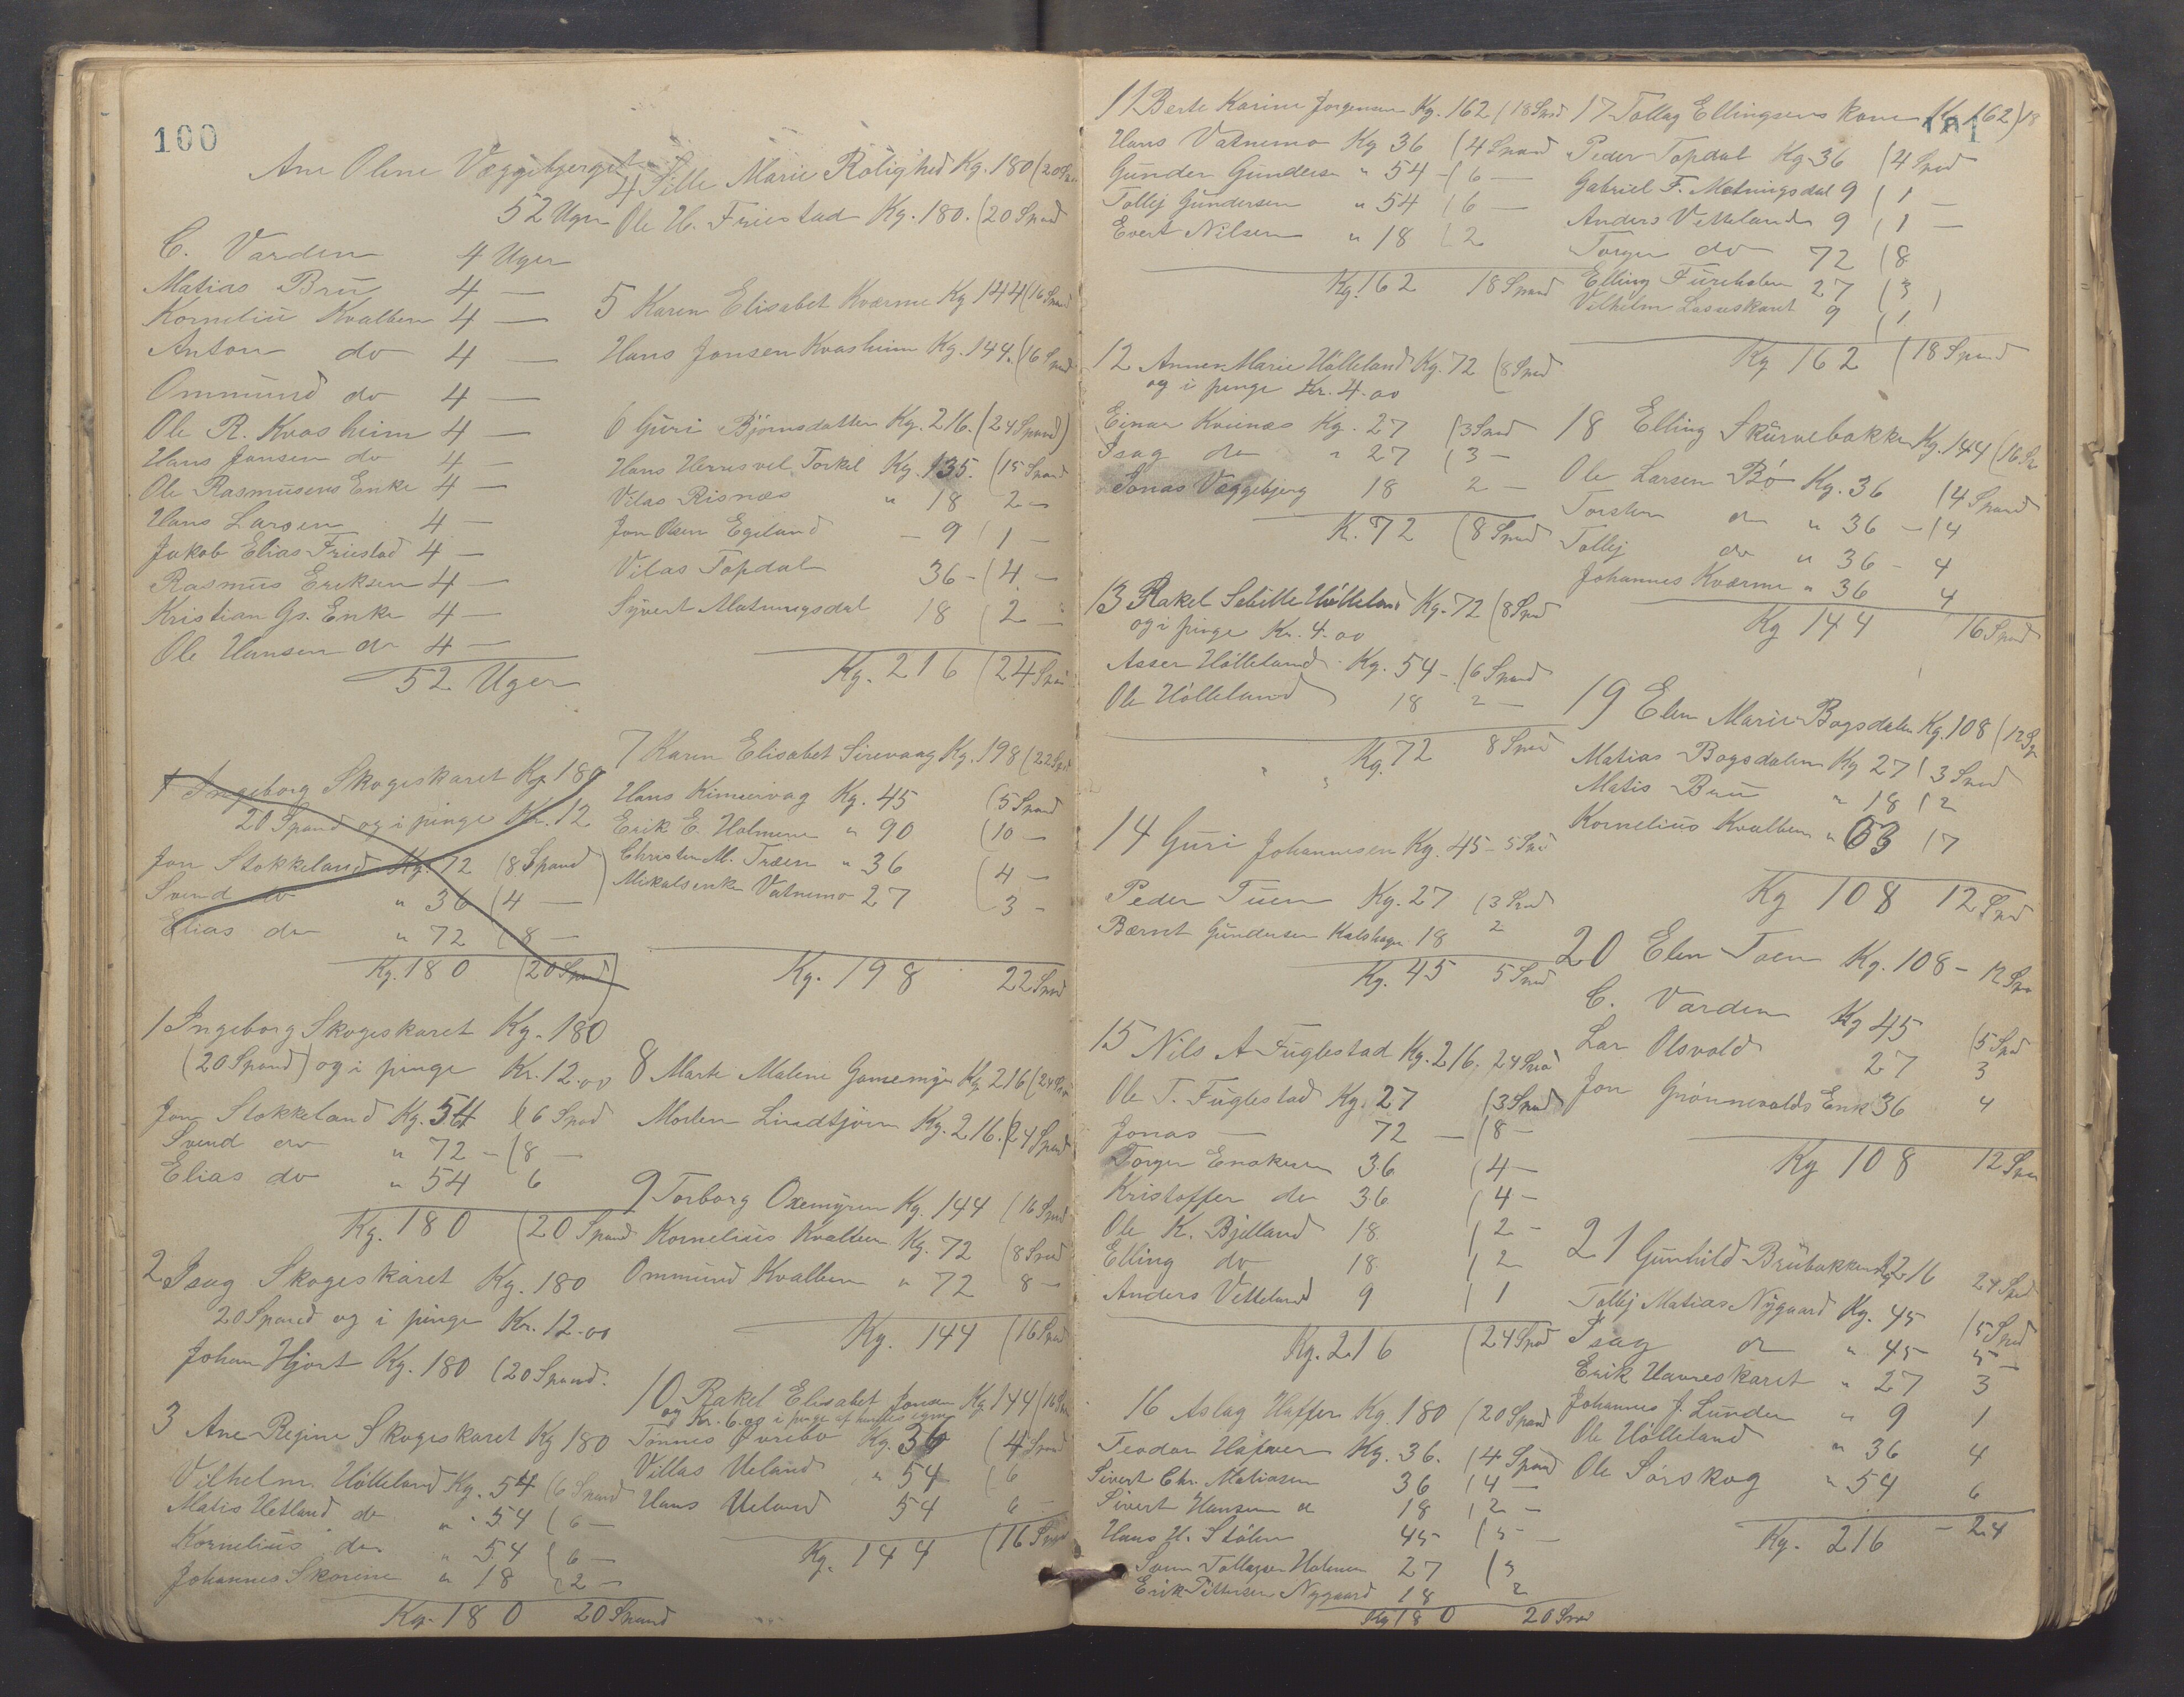 100
Ane Olene Væggebjerget
52 Uger
C. Varden 4 Uger
Matias Brü 4 —
Kornelius Kvalben 4 —
Anton do 4 —
Ommund do 4 —
Ole R. Kvasheim 4 —
Hans Jansen do 4 —
Ole Rasmusens Enke 4 —
Hans Larsen 4 —
Jakob Elias Friestad 4 —
Rasmus Eriksen 4 —
Kristian Gs. Enke 4 —
Ole Hansen do 4 —
52 Uger
1 Ingeborg Skogeskaret Kg 180
20 Spand og i penge Kr. 12
Jon Stokkeland Kg. 72 (8 Spand)
Svend do " 36 (4 —
Elias do " 72 (8 —
Kg. 180 (20 Spand)
1 Ingeborg Skogeskaret Kg. 180
(20 Spand) og i penge Kr. 12.00
Jon Stokkeland Kg. 54 (6 Spad
Svend do " 72 – (8 —
Elias do " 54 6
Kg. 180 (20 Spand
2 Isag Skogeskaret Kg. 180
20 Spand og i penge Kr. 12.00
Johan Hjort Kg. 180 (20 Spand.
3 Ane Regine Skogeskaret Kg 180
Vilhelm Hölleland Kg. 54 (6 Spand
Matis Hetland do " 54 (6 —
Kornelius do " 54 (6 —
Johannes Skorene " 18 (2 —
Kg. 180 20 Spand
4 Sille Marie Rolighed Kg. 180 (20 Spa
Ole H. Friestad Kg. 180. (20 Spand
5 Karen Elisabet Kværme Kg 144 (16 Spand
Hans Jansen Kvasheim Kg. 144. (16 Spand
6 Guri Björnsdatter Kg. 216. (24 Spand)
Hans Hernes vel. Torkel Kg. 135. (15 Spand
Vilas Risnæs " 18 2 —
Jon Olsen Egeland — 9 (1 —
Vilas Topdal 36 – (4 —
Syvert Matningsdal 18 (2 —
Kg. 216 (24 Span
7 Karen Elisabet Sirevaag Kg. 198 (22 Sp
Hans Kimervag Kg. 45 (5 Spand
Erik E. Holmen " 90 (10 —
Christen M. Træen " 36 (4 —
Mikalsenke Vatnemo 27 (3 —
Kg. 198 22 Spnd
8 Marte Malene Gamemyr Kg 216 (24 Spa
Morten Lindtjörn Kg. 216. (24 Spand
9 Torborg Oxemyren Kg. 144 (16 Spnd
Kornelius Kvalben Kg. 72 (8 Spnd
Ommund Kvalben " 72 8 —
Kg. 144 (16 Spnd
10 Rakel Elisabet Jonsen Kg 144 (16 Spa
og Kr. 6.00 i penge af hendes egne
Tønnes Øvrebø Kg. 36 (4 Spand
Villas Ueland " 54 (6
Hans Ueland 54 6 —
Kg. 144 (16 Spnd
11 Berte Karine Jorgensen Kg. 162 (18 Spnd
Hans Vatnemo Kg 36 (4 Spand
Gunder Gunders " 54 – (6 —
Tollej Gundersen " 54 (6 —
Evert Nilsen " 18 (2
Kg. 162 18 Spand
12 Anne Marie Hölleland Kg. 72 (8 Spnd
og i penge Kr. 4.00
Einar Kvinæs Kg. 27 (3 Spnd
Isag do " 27 (3 —
Jonas Væggebjerg 18 2 —
K. 72 (8 Spnd
13 Rakel Sabille Hölleland Kg. 72 (8 Spnd
og i penge Kr. 4.00
Asser Hölleland Kg. 54 – (6 Spand
Ole Hölleland 18 2 —
Kg. 72 8 Spnd
14 Guri Johannesen Kg. 45 – 5 Spa
Peder Tuen Kg. 27 (3 Spnd
Bærnt Gundersen Kalshagen 18 2
Kg. 45 5 Spnd
15 Nils A Fuglestad Kg. 216. 24 Spa
Ole T. Fuglestad Kg. 27 (3 Spnd
Jonas — 72 — (8 —
Torger Enoksen 36 (4 —
Kristoffer do 36 (4 —
Ole K. Bjelland 18 (2 —
Elling do 18 (2
Anders Vetteland 9 (1
Kg. 216 (24 Spnd
16 Aslag Haffen Kg. 180 (20 Spand
Teodor Hafner Kg. 36. (4 Spand
Sivert Chr. Matiasen 36 (4 —
Sivert Hansen do 18 (2 —
Hans H. Stölen 45 (5 —
Sven Tollagsen Holmen 27 (3
Erik Pittersen Nygaard 18 2
Kg 180 20 Spnd
101
17 Tollag Ellingsens kone Kg 162) 18
Peder Topdal Kg 36 (4 Spnd
Gabriel F. Matningsdal 9 (1 —
Anders Vetteland 9 (1 —
Torger do 72 (8
Elling Fureholen 27 (3
Vilhelm Lasseskaret 9 (1
Kg 162 (18 Spnd
18 Elling Skurvebakken Kg. 144 (16 Sp
Ole Larsen Bö Kg. 36 (4 Spand
Torsten do " 36 – (4
Tollej do " 36 – 4
Johannes Kværme " 36 4
Kg 144 16 Spnd
19 Elen Marie Bogsdalen Kg. 108 (12 Sp
Matias Bogsdalen Kg 27 (3 Spnd
Matis Bru " 18 (2
Kornelius Kvalben " 63 (7
Kg 108 12 Spnd
20 Elen Toen Kg. 108 – 12 Spa
C. Varden Kg 45 (5 Spd
Lar Olsvold 27 3
Jon Grönnevolds Enk 36 4
Kg 108 12 Spa
21 Gunhild Brübakken Kg 216 24 Spnd
Tollej Matias Nygaard Kg. 45 (5 Spnd
Isag do " 45 5 —
Erik Havreskaret " 27 3
Johannes J. Lunden " 9 1
Ole Hölleland " 36 4
Ole Sörskog " 54 6
Kg. 216 – 24